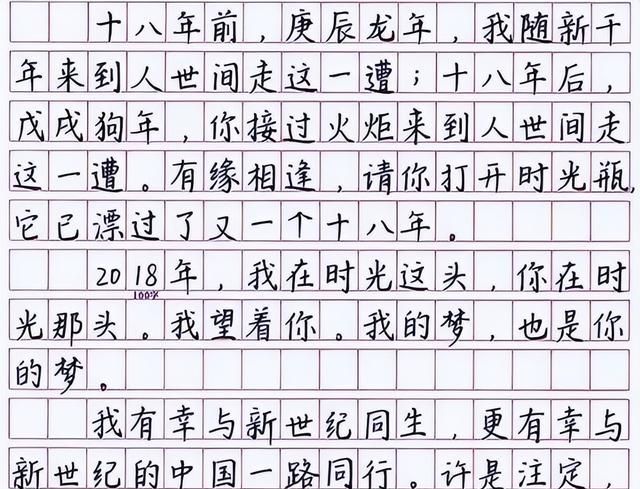 十八年前，庚辰龙年，我随新千
年来到人世间走这一遭；十八年后，
戊戌狗年，你接过火炬来到人世间走
这一遭。有缘相逢，请你打开时光瓶，
它已漂过了又一个十八年。
2018年，我在时光这头，你在时
100%
光那头。我望着你。我的梦，也是你
的梦。
我有幸与新世纪同生，更有幸与
新世纪的中国一路同行。许是注定，